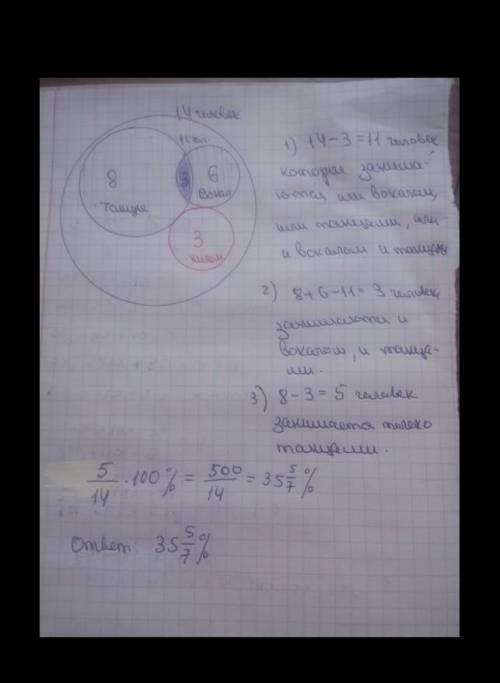 14 человек
11 чел
8
3
6
Вокал
Танцы
3
1) 14 - 3 = 11 человек
которые занима-
ются или вокалом,
или танцами, или
и вокалом и танцами
2) 8 + 6 - 11 = 3 человек
занимаются и
вокалом, и танца-
ми.
3) 8 - 3 = 5 человек
занимается только
танцами.
5/14 · 100% = 500/14 = 35 5/7 %
Ответ 35 5/7 %